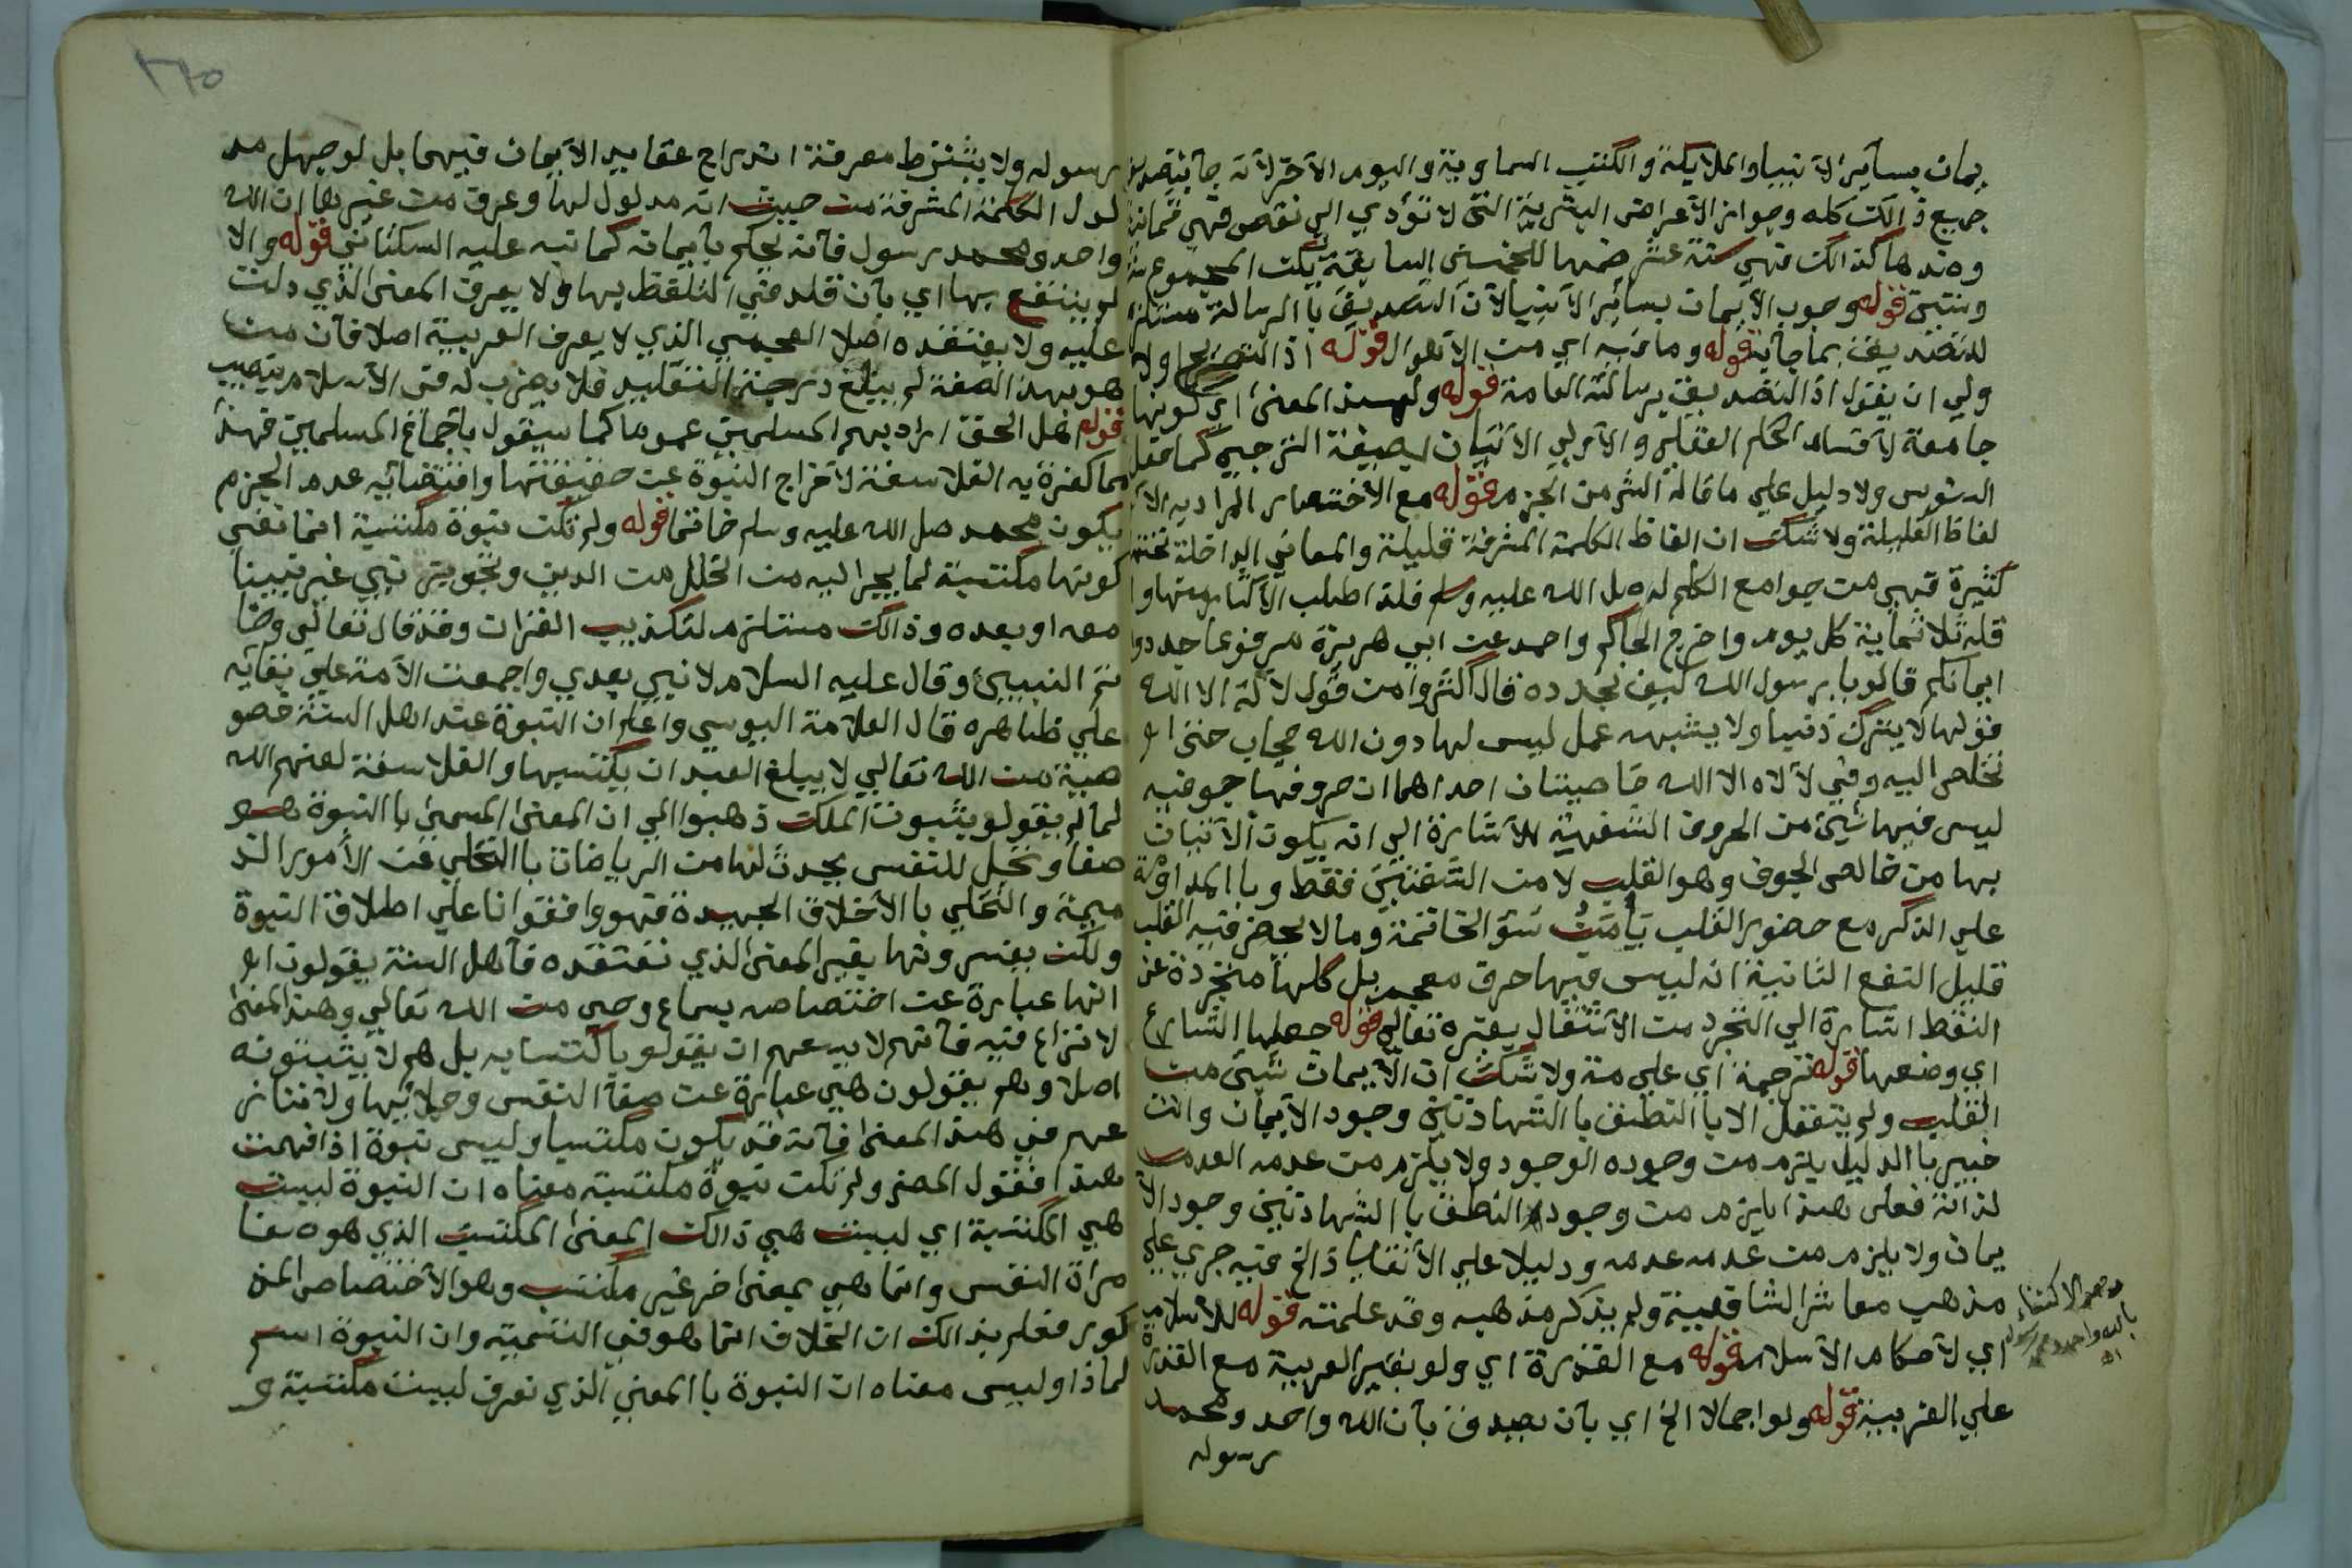 يمان بسآير الآ نبيا والملايكة والكتب السماوية واليوم الآخر لآنه جآ بتصديق
جميع ذالك كله وجواز الآعراض البشرية التي لا تؤدي الي نقص فهي ثمانية
وضدها كذالك فهي ستة عشر ضمها للخمسين السابقة يكن المجموع ستة
وستين قوله وجوب الآيمان بسآير الآنبيا لآن التصديق با الرسالة مستلزم
للتصديق بما جآ به قوله وما مر به اي من الآهوال قوله اذ التصريح اولا
ولي ان يقول اذ التصديق برسالته العامة قوله ولهذا المعنى اي كونها
جامعة لآقسام الحكم العقلي و الآولي الآتيان بصيغة الترجي كما فعل
السنوسي ولا دليل علي ما قاله الشر من الجزم قوله مع الآختصار المراد به الآ
لفاظ القليلة ولا شك ان الفاظ الكلمة المشرفة قليلة والمعاني الداخلة تحتها
كثيرة فهي من جوامع الكلم له صل الله عليه وسلم فلذا طلب الآكثار منها وا
قله ثلاثماية كل يوم واخرج الحاكم واحمد عن ابي هريرة مرفوعا جددوا
ايمانكم قالو يا رسول الله كيف نجدده قال اكثروآ من قول لآ اله الا الله
فقولها لا يترك ذنبا ولا يشبهه عمل ليس لها دون الله حجاب حتى ا و
تخلص اليه وفي لآ لاه الا الله خاصيتان احداهما ان حروفها جوفيه
ليس فيها شيئ من الحروف الشفهية للآشارة الي انه يكون الآتيان
بها من خالص الجوف وهو القلب لا من الشفتين فقط وبا المداومة
علي الذكر مع حضور القلب يآمن سؤ الخاتمة وما لا يحضر فيه القلب
قليل النفع الثانية انه ليس فيها حرف معجم بل كلها متجردة عن
النقط اشارة الي التجرد من الآشتغال بغيره تعالي قوله جعلها الشارع
اي وضعها قوله ترجمة اي علي مة ولا شك ان الآيمان شيئ من
القلب ولم يتعقل الا با النطق با الشهادتين وجود الآيمان وانت
خبير با الدليل يلزم من وجوده الوجود ولا يلزم من عدمه العدم
لذاته فعلى هذا يلزم من وجود النطق با الشهادتين وجود الآ
يمان ولا يلزم من عدمه عدمه ودليلا علي الآنقياد الخ فيه جري علي
مذهب معاشر الشافعية ولم يذكر مذهبه وقد علمته قوله للآسلام
اي لآحكام الآسلام قوله مع القدرة اي ولو بغير العربية مع القدرة
علي العربية قوله ولو اجمالا الخ اي بآن يصدق بآن الله واحد ومحمد
رسوله
وهو الاكتفاء
بالله واحد ومحمد رسوله
اه
٢٦٥
رسوله ولا يشترط معرفة اندراج عقايد الآيمان فيهما بل لو جهل مد
لول الكلمة المشرفة من حيث انه مدلول لها وعرف من غيرها ان الله
واحد ومحمد رسول فآنه يحكم بآيمانه كما نبه عليه السكتاني قوله والا
لم ينتفع بها اي بآن قلد في التلفظ بها ولا يعرف المعنى الذي دلت
عليه ولا يعتقده اصلا العجمي الذي لا يعرف العربية اصلا فآن من
هو بهذا الصفة لم يبلغ درجة التقليد فلا يضرب له في الآسلام بنصيب
قوله اهل الحق اراد بهم المسلمين عموما كما سيقول بآجماع المسلمين فهذا
مما كفرة به الفلاسفة لآخراج النبوة عن حقيقتها واقتضائيه عدم الجزم
بكون محمد صل الله عليه وسلم خاتما قوله ولم تكن نبوة مكتسبة انما نفي
كونها مكتسبة لما يجر اليه من الخلل من الدين وتجويز نبي غير نبينا
معه او بعده وذالك مستلزم لتكذيب القرآن وقد قال تعالي وخا
تم النبيئ وقال عليه السلام لا نبي بعدي واجمعت الآمة علي بقآيه
علي ظاهره قال العلامة اليوسي واعلم ان النبوة عند اهل السنة خصو
هبة من الله تعالي لا يبلغ العبد ان يكتسبها والفلاسفة لعنهم الله
لما لم يقولو بثبوت الملك ذهبوا الي ان المعنى المسمى با النبوة هو
صفا وتجل للنفس يحدث لها من الرياضات با التخلي عن الآمور الذ
ميمة و التخلي با الآخلاق الحميدة فهو وافقوانا علي اطلاق النبوة
ولكن يفسرونها بغير المعنى الذي نعتقده فآهل السنة يقولون ا و
انها عبارة عن اختصاصه بسماع وحي من الله تعالي وهذا المعنى
لا نزاع فيه فآنهم لا يسعهم ان يقولو بآكتسابه بل هم لآ يثبتونه
اصلا وهم يقولون هي عبارة عن صفآ النفس وجلآئها ولآ ننازع
عهم في هذا المعنى فآنه قد يكون مكتسبا وليس نبوة اذا فهمت
هذا فقول المص ولم تكن نبوة مكتسبة معناه ان النبوة ليست
هي المكتسبة اي ليست هي ذالك المعنى المكتسب الذي هو صفا
مرآة النفس وانما هي بمعنى اخر غير مكتسب وهو الآختصاص المذ
كور فعلم بذالك ان الخلاف انما هو في التسمية وان النبوة اسم
لماذا وليس معناه ان النبوة با المعني الذي نعرف ليست مكتسبة و